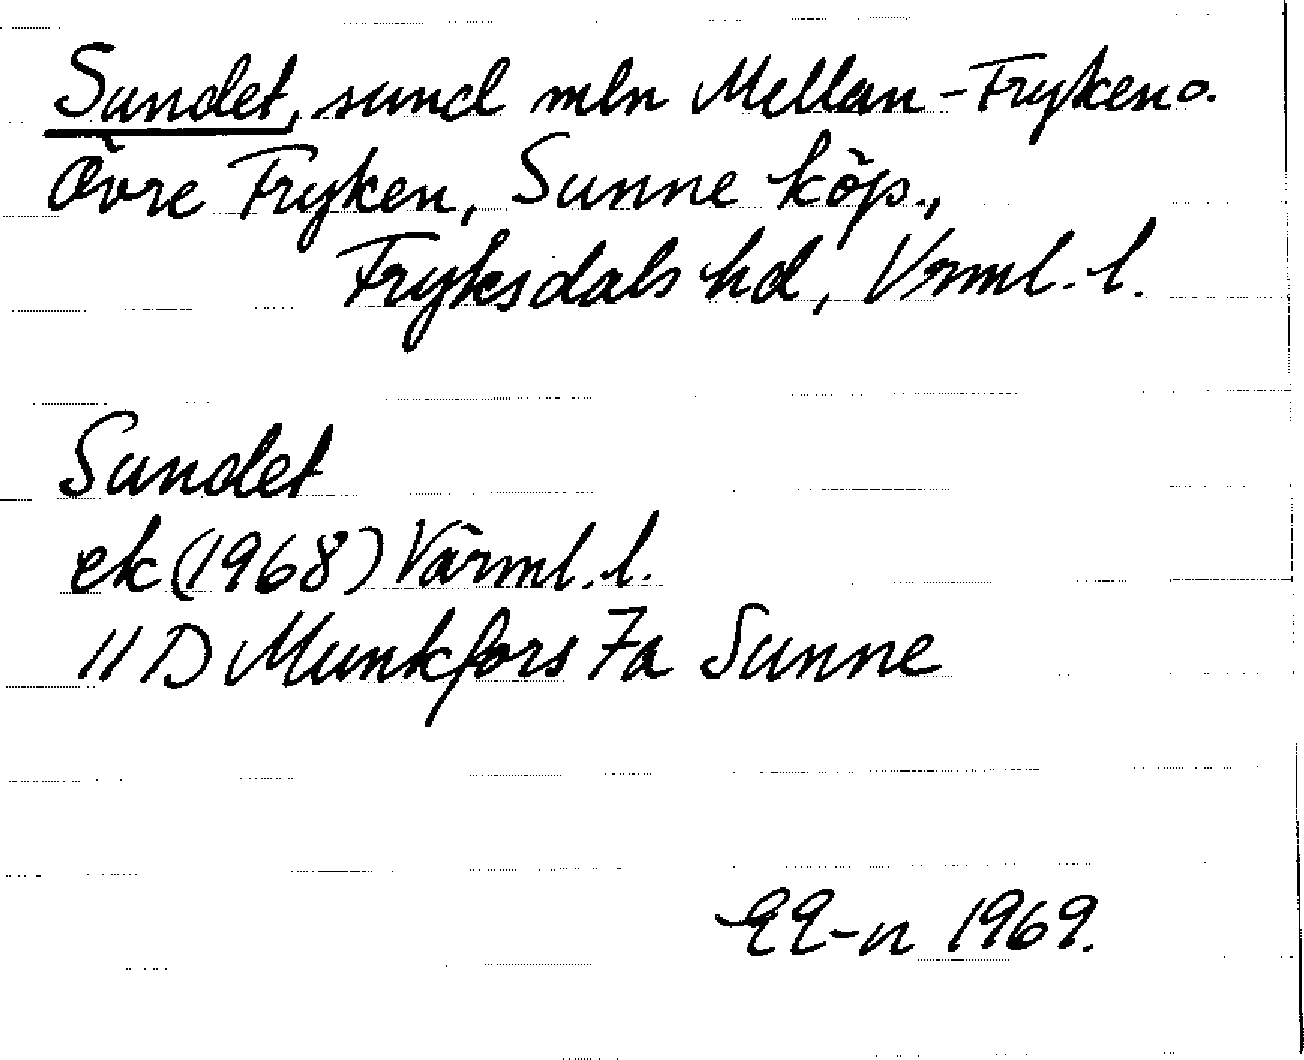 Sundet, sund mln Mellan-Fryken o.
Övre Fryken, Sunne köp.,
Fryksdals hd, Vrml. l.
Sundet
ek (1968) Värml. l.
11 D Munkfors 7a Sunne
1969.